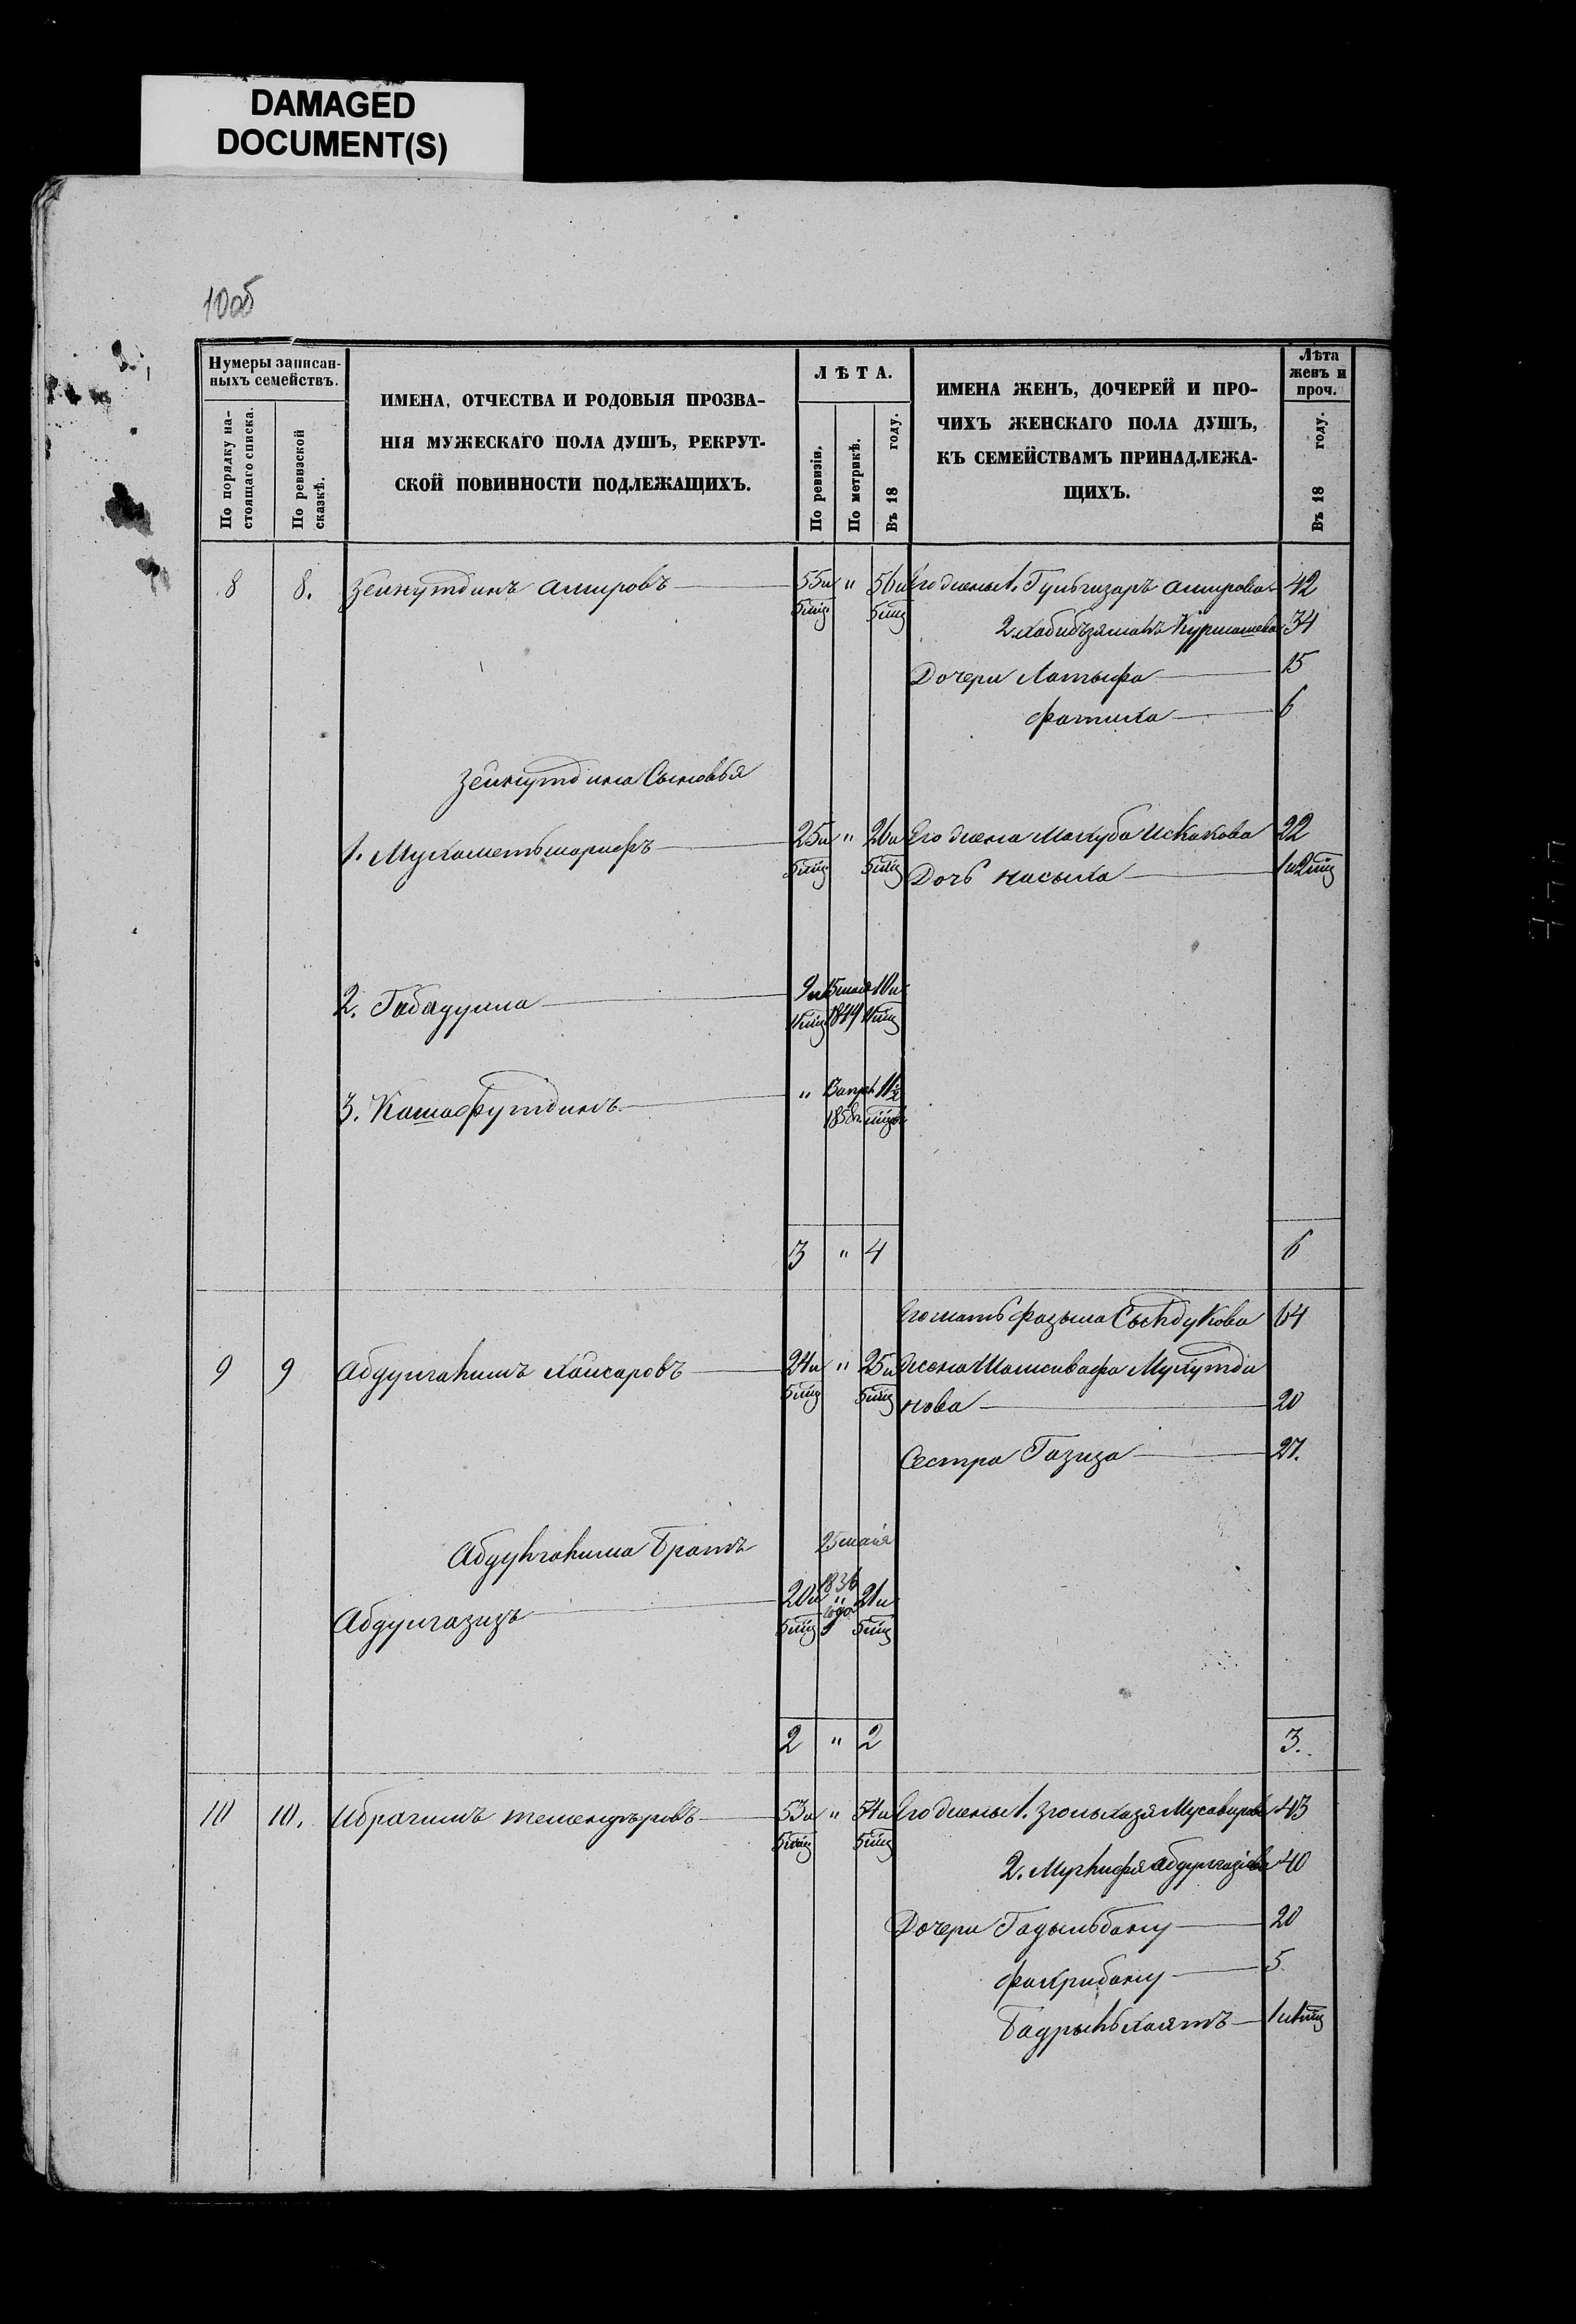 DAMAGED
DOCUMENT(S)
10об
Нумеры записан-
ныхъ семействъ.
По порядку на-
стоящаго списка.
По ревизской
сказкѣ.
ИМЕНА, ОТЧЕСТВА И РОДОВЫЯ ПРОЗВА-
НІЯ МУЖЕСКАГО ПОЛА ДУШЪ, РЕКРУТ-
СКОЙ ПОВИННОСТИ ПОДЛЕЖАЩИХЪ.
ЛѢТА.
По ревизіи.
По метрикѣ.
Въ 18 году.
ИМЕНА ЖЕНЪ, ДОЧЕРЕЙ И ПРО-
ЧИХЪ ЖЕНСКАГО ПОЛА ДУШЪ,
КЪ СЕМЕЙСТВАМЪ ПРИНАДЛЕЖА-
ЩИХЪ.
Лѣта
женъ и
проч.
Въ 18 году.
8 8. Зейнутдинъ Амировъ 55и " 56и Его жены 1. Гульгизаръ Амирова 42
5мц. 5мц 2. Хабибзяманъ Курмашева 34
Дочери Латыфа 15
Фатиха 6
Зейнутдина Сыновья
1. Мухаметьшарифъ 25и " 26и Его жена Махуба Искакова 22
5мц 5мц Дочь Насыха 1и2мц
2. Габадулла 9и 15 мая 10и
11мц 1844 11мц
3. Кашафутдинъ " 11½
1858 мцов
3 " 4 6
Его мать Фазыла Сындукова 64
9 9 Абдулгакимъ Хайсаровъ 24и " 25и Жена Шамсивафа Мухутди
5мц 5мц нова 20
Сестра Газиза 27.
Абдулгакима Братъ 25 мая
Абдулгазизъ 20и 1836 года 21и
5мц 5мц
2 " 2 3.
10 10. Ибрагимъ 53и " 54и Его жены 1. Мусавирова 43
5мц 5мц 2. Абдулгазизова 40
Дочери Гадыльбану 20
Фахрибану 5
Бадрыньхаятъ 1и1мц